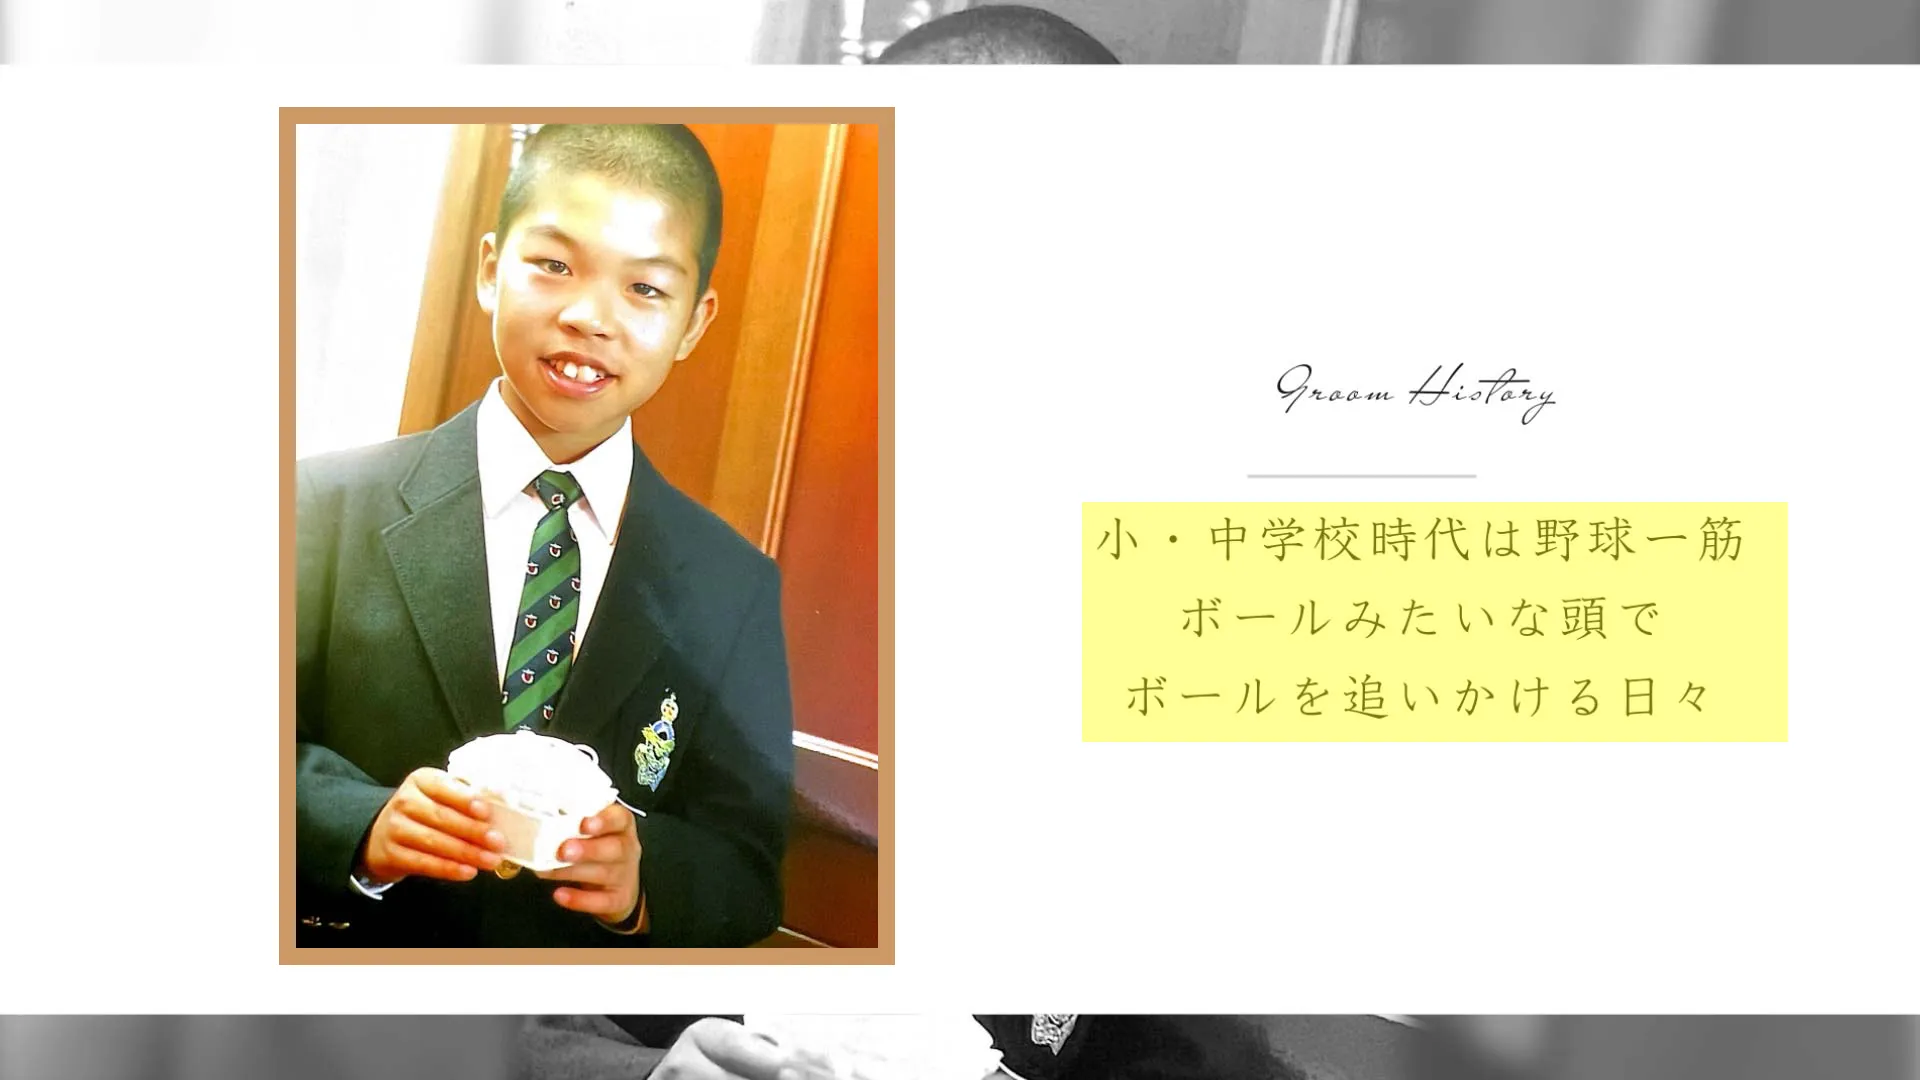 Groom History
小・中学校時代は野球一筋
ボールみたいな頭で
ボールを追いかける日々